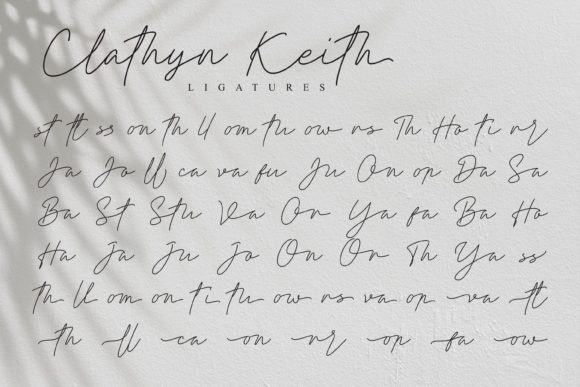 Clathyn Keith
LIGATURES
st tt ss on th ll om tu ow rs Th Ho ti nr
Ja Jo ll ca va fu Ju On op Da Sa
Ba St Stu Va On Ya fa Ba Ho
Ha Ja Ju Jo On On Th Ya ss
th ll om on ti tu ow rs va op va tt
th ll ca on nr op fa ow